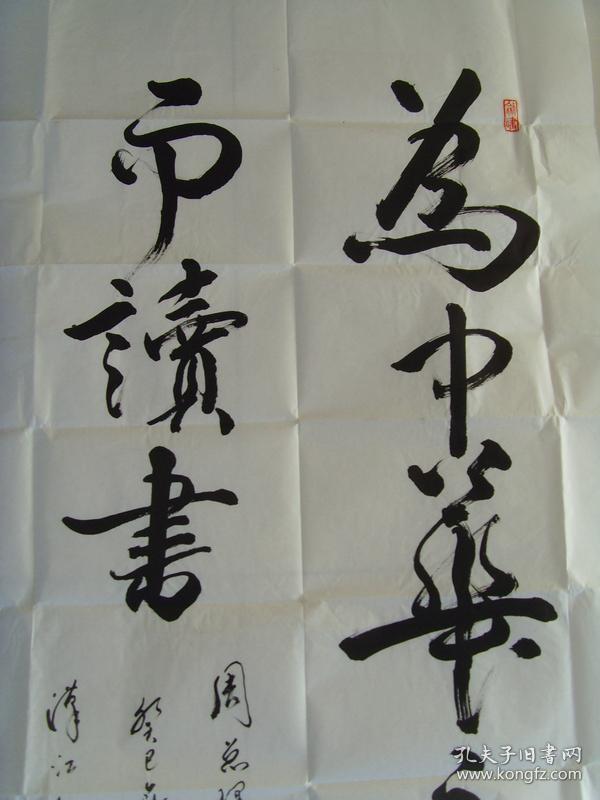 為中華
而讀書
周总理
癸巳年
漢江
孔夫子旧书网
www.kongfz.com